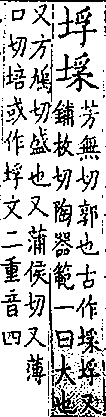 垺埰芳無切郭也古作埰垺又
鋪枚切陶器範一曰大也
又方鳩切盛也又蒲侯切又薄
口切培或作垺文二重音四